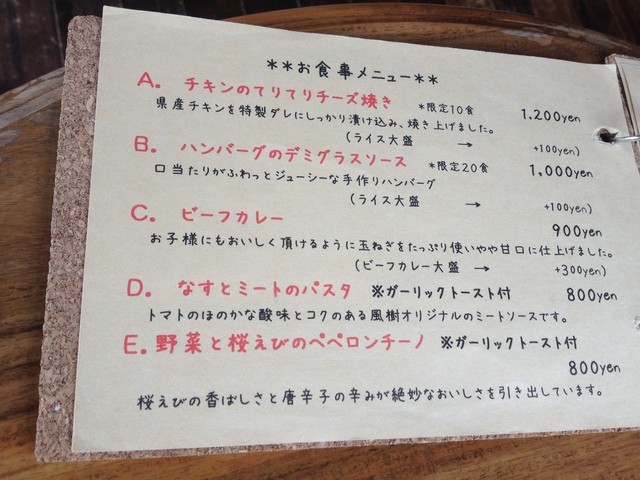 **お食事メニュー**
A. チキンのてりてりチーズ焼き *限定10食 1,200yen
県産チキンを特製ダレにしっかり漬け込み、焼き上げました。
(ライス大盛 → +100yen)
B. ハンバーグのデミグラスソース *限定20食 1,000yen
口当たりがふわっとジューシーな手作りハンバーグ
(ライス大盛 → +100yen)
C. ビーフカレー 900yen
お子様にもおいしく頂けるように玉ねぎをたっぷり使いやや甘口に仕上げました。
(ビーフカレー大盛 → +300yen)
D. なすとミートのパスタ ※ガーリックトースト付 800yen
トマトのほのかな酸味とコクのある風樹オリジナルのミートソースです。
E. 野菜と桜えびのペペロンチーノ ※ガーリックトースト付
800yen
桜えびの香ばしさと唐辛子の辛みが絶妙なおいしさを引き出しています。